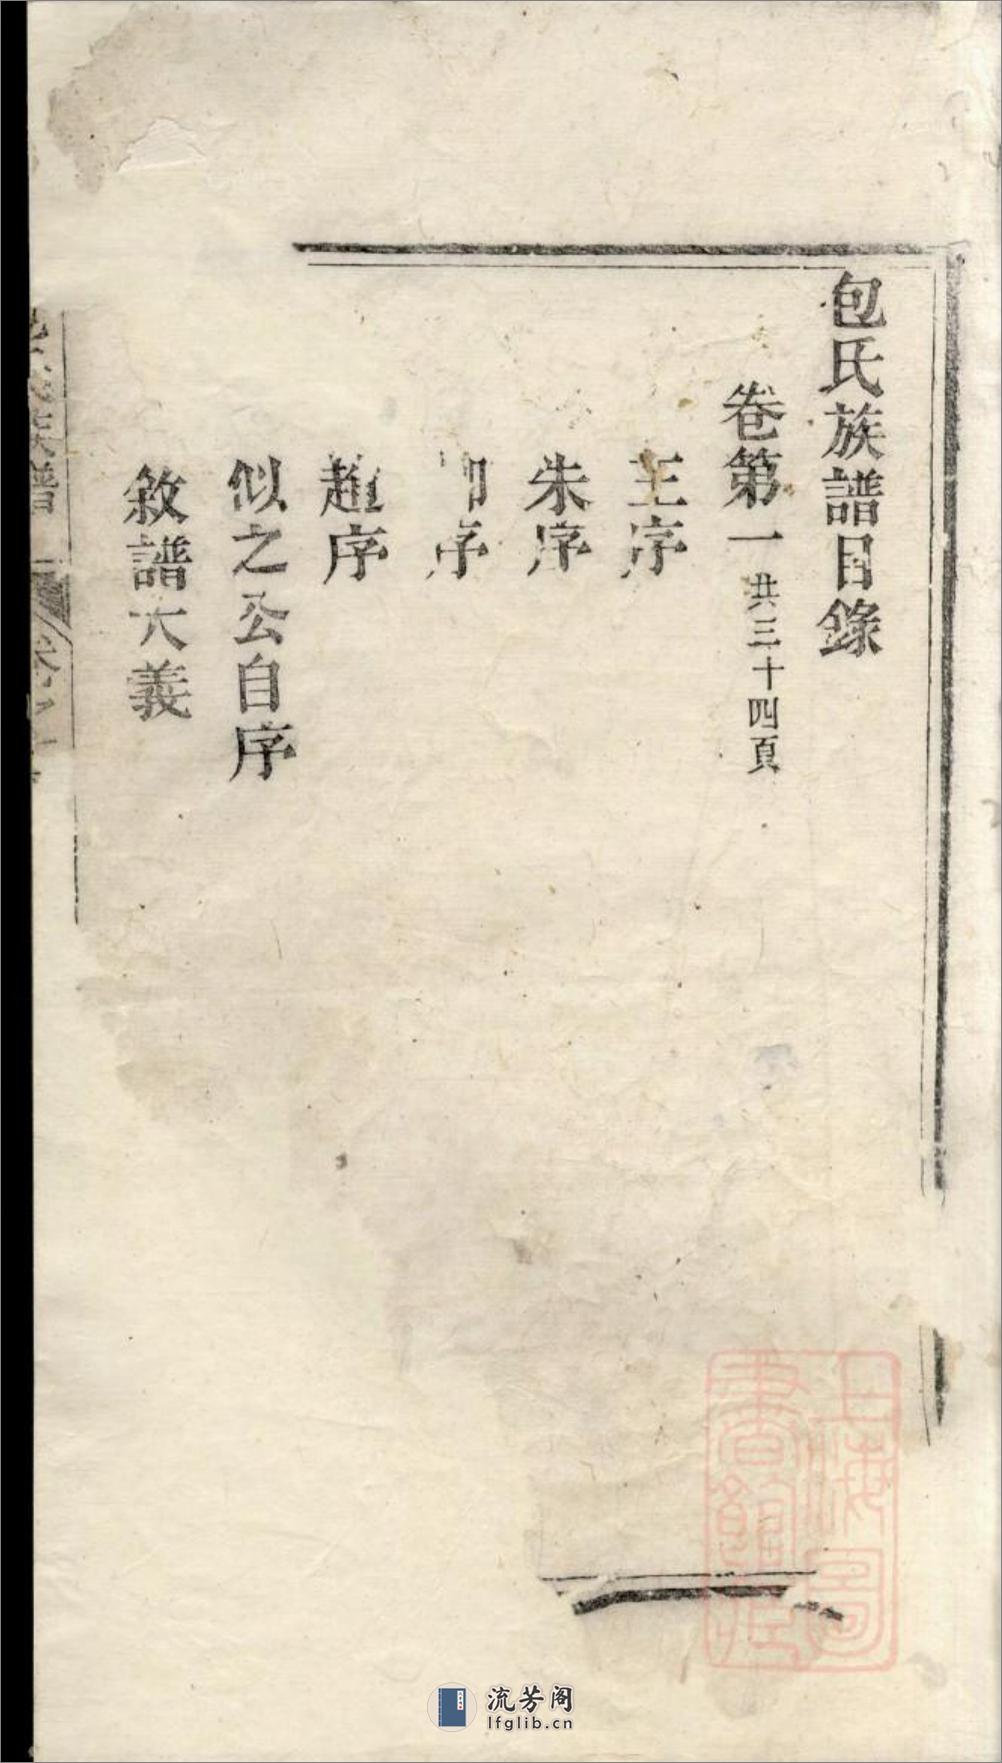 包氏族譜目錄
卷第一 共三十四頁
王序
朱序
序
趙序
似之公自序
敘譜大義
族譜
上海圖書館藏
流芳阁
lfglib.cn